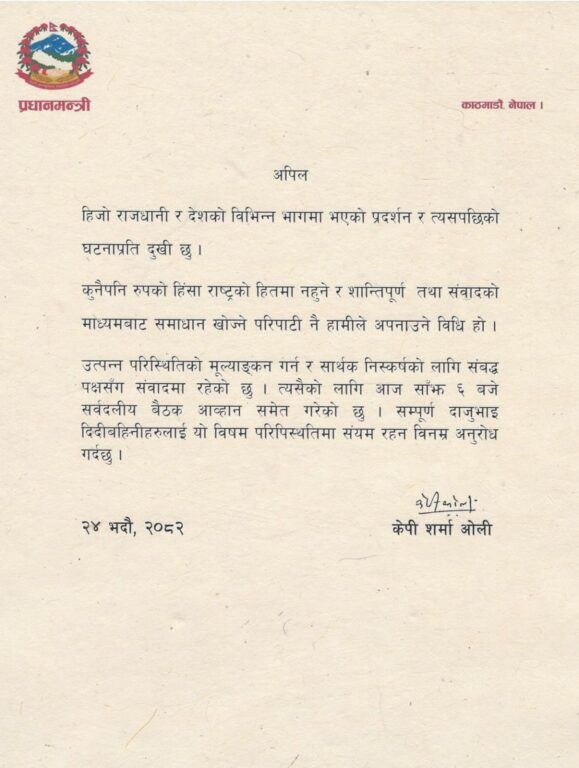 प्रधानमन्त्री
काठमाडौं, नेपाल ।
अपिल
हिजो राजधानी र देशको विभिन्न भागमा भएको प्रदर्शन र त्यसपछिको
घटनाप्रति दुखी छु ।
कुनैपनि रुपको हिंसा राष्ट्रको हितमा नहुने र शान्तिपूर्ण तथा संवादको
माध्यमबाट समाधान खोज्ने परिपाटी नै हामीले अपनाउने विधि हो ।
उत्पन्न परिस्थितिको मूल्याङ्कन गर्न र सार्थक निस्कर्षको लागि संबद्ध
पक्षसँग संवादमा रहेको छु । त्यसैको लागि आज साँझ ६ बजे
सर्वदलीय बैठक आव्हान समेत गरेको छु । सम्पूर्ण दाजुभाइ
दिदीबहिनीहरुलाई यो विषम परिपिस्थतिमा संयम रहन विनम्र अनुरोध
गर्दछु ।
२४ भदौ, २०८२
केपी शर्मा ओली